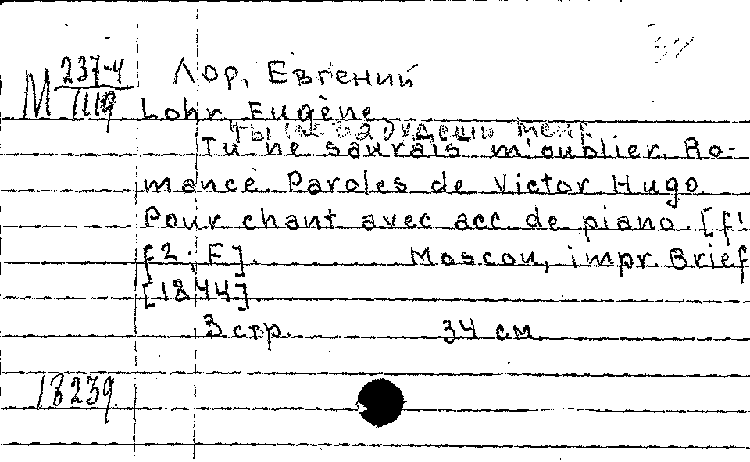 М 237-4
1119
Лор, Евгений
Lohr Eugène
Ты не забудешь меня
Tu ne saurais m'oublier. Ro-
mance. Paroles de Victor Hugo.
Pour chant avec acc. de piano. [f!
f2; E]. Moscou, impr. Brief
[1844].
3 стр. 34 см
18239